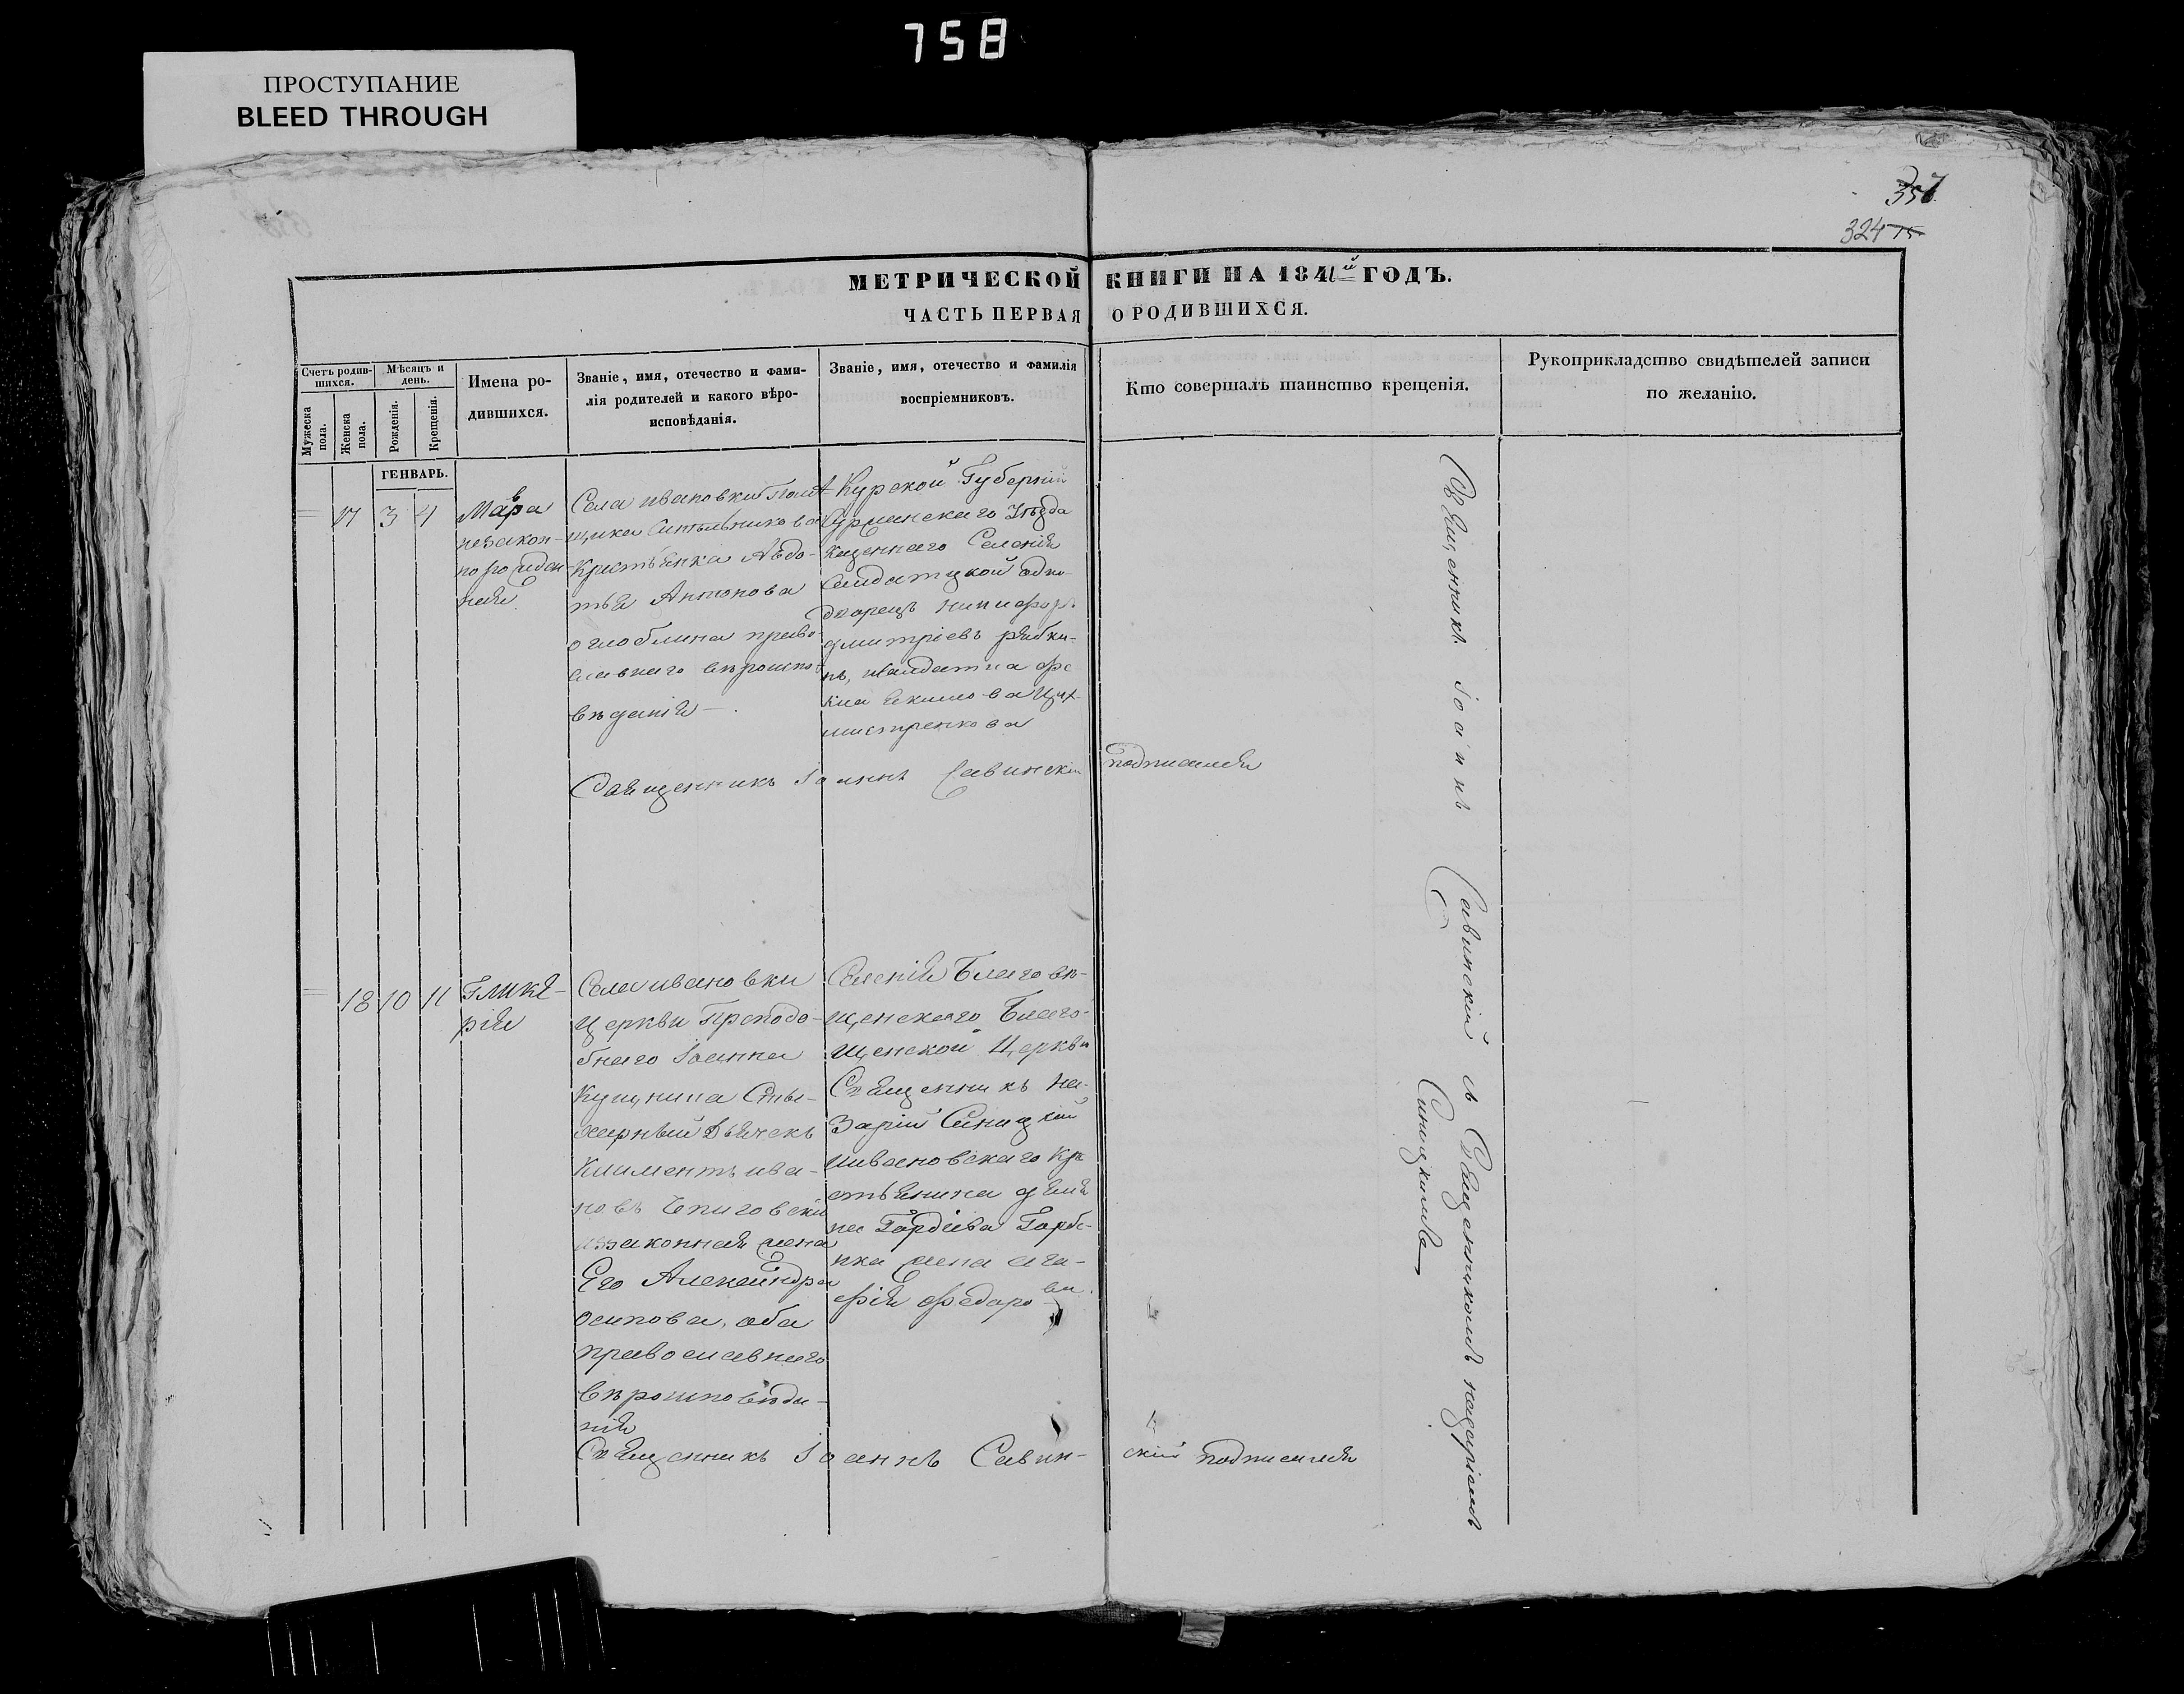 758
ПРОСТУПАНИЕ
BLEED THROUGH
357
324
МЕТРИЧЕСКОЙ КНИГИ НА 1841й ГОДЪ.
ЧАСТЬ ПЕРВАЯ О РОДИВШИХСЯ.
Счетъ родив-
шихся.
Мужеска
пола.
Женска
пола.
Мѣсяцъ и
день.
Рожденія.
Крещенія.
Имена ро-
дившихся.
Званіе, имя, отечество и фами-
лія родителей и какого вѣро-
исповѣданія.
Званіе, имя, отечество и фамилія
воспріемниковъ.
Кто совершалъ таинство крещенія.
Рукоприкладство свидѣтелей записи
по желанію.
ГЕНВАРЬ.
17 3 4
Мавра
незакон-
норожден-
ная
Села ивановки Помѣ-
щика Ситъльникова
Крестьянка Авдо-
тья Антонова
оглоблина право-
славнаго вѣроиспо-
вѣданія
Курской Губерніи
Уѣзда
Казеннаго Селенія
Салдатцкой одно-
дворецъ никифоръ
дмитріевъ рябки-
нъ,
Священникъ Іоаннъ Савинскій подписался
18 10 11
Гликѣ-
рія
Села ивановки
Церкви Преподо-
бнаго Іоанна
Кущника Сты-
харный Дьячекъ
Климентъ ива-
новъ
законная жена
Его Александра
осипова, оба
православнаго
вѣроисповѣда-
нія
Селенія Благовѣ-
щенскаго Благо-
щенской Церкви
Священникъ На-
зарій Синицкій
иивановскаго Кре
стьянина демя
на Гордіева Горбе-
нка жена ага-
фія федорова
Священникъ Іоаннъ Савин-
скій подписался
Священникъ Іоаннъ Савинскій съ Священникомъ назаріемъ
Синицкимъ